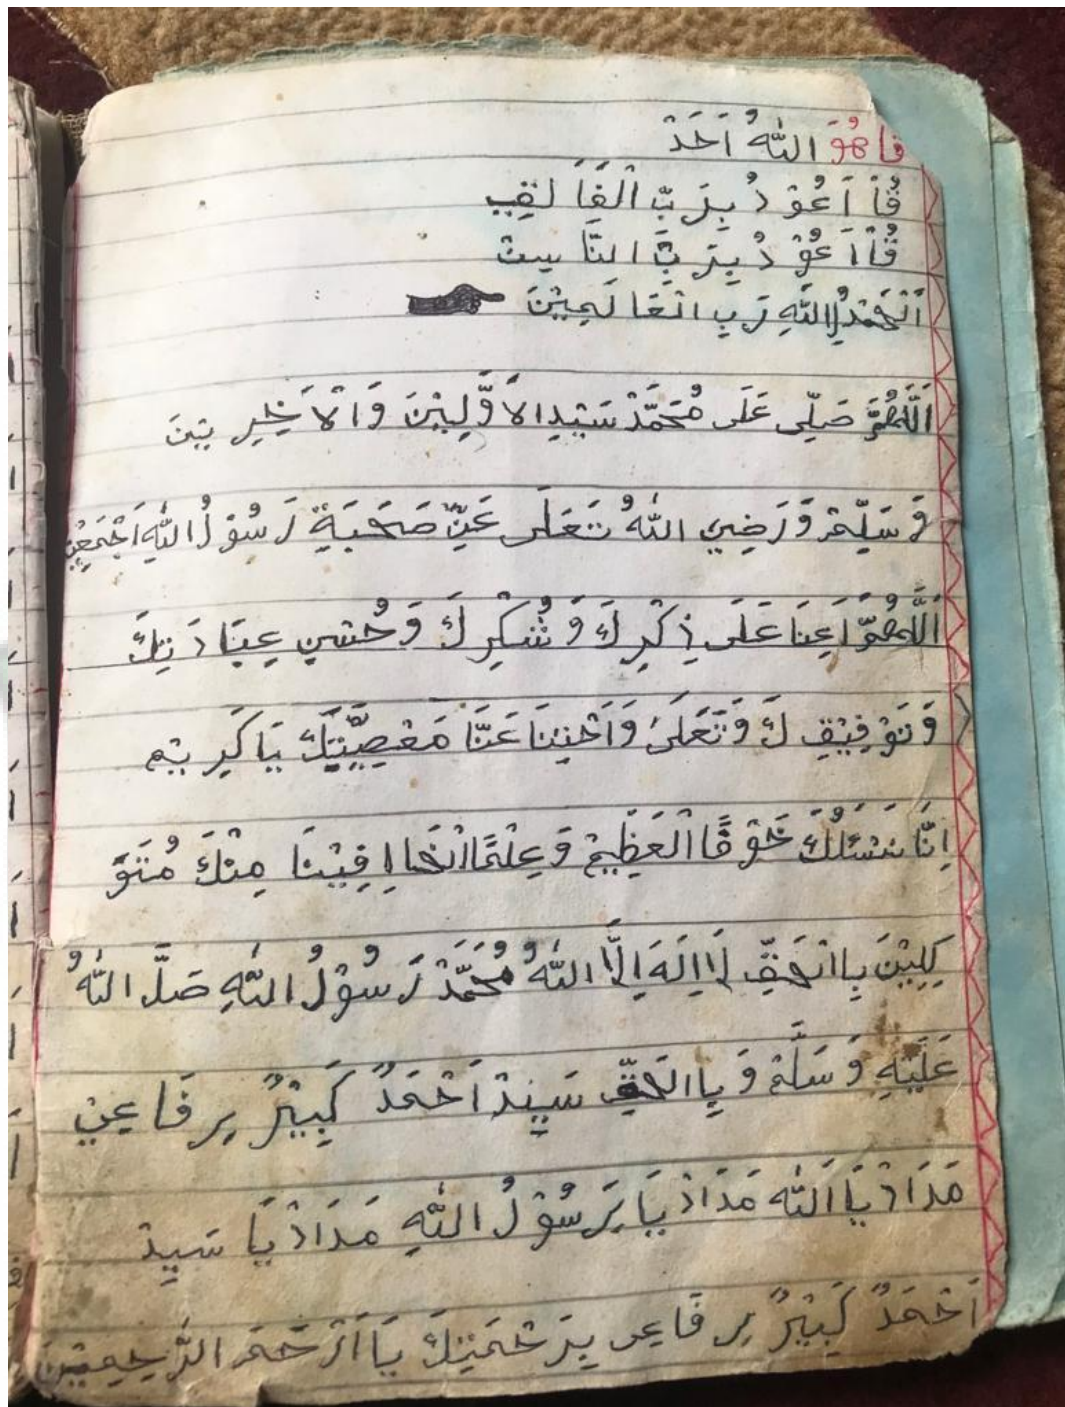 فَا هُوَ اللّٰهُ اَحَدْ
قُاْ اَعُوْدُ بِرَبِّ الْفَاَ لَقِبِ
قُاْ اَعُوْدُ بِرَبِّ النَّا سِتْ
اَلْحَمْدُ لِاللّٰهِ رَبِ الْعَا لَمِيْنَ
اَللّٰهُمَّ صَلِّى عَلَى مُحَمَّدْ سَيِّدِ الاَوَّلِيْنَ وَالْاَخِرِ يْنَ
وَسَلِّمْ وَرَضِي اللّٰهُ تَعَلَى عَنِّ صَحَبَةِ رَسُوْلُ اللّٰهِ اَجْمَعِيْن
اَللَّهُمَّ اَعِنَا عَلَى ذِكْرِكَ وَ شُكْرِكَ وَ حُسْنِ عِبَادَتِكَ
وَتَوْفِيْقِكَ وَ تَعَلَىٰ وَاَحْنِنَا عَنَّا مَعْصِيَّتِكَ يَاكَرِيْم
اِنَّا نَسْئَلُكَ خَوْفًا الْعَظِيْمْ وَعِلْمًا انْخَا اِفِيْنَا مِنْكَ مُتَوَ
كِلِيْنَ بِاالْحَقِّ لَااِلَهَ اِلَّا اللّٰهُ مُحَمَّدْ رَسُوْلُ اللّٰهِ صَلَّ اللّٰهُ
عَلَيْهِ وَ سَلَّمْ وَ بِاالْحَقِّ سَيِدْ اَحْمَدْ كَبِيْرْ رِفَاعِيْ
مَدَادْ يَا اَللّٰه مَدَادْ يَا رَسُوْلُ اللّٰهِ مَدَادْ يَا سَيِدْ
اَحْمَدْ كَبِيْرْ رِفَاعِى بِرَحْمَتِكَ يَا اَرْحَمَ الرَّحِمِيْنَ